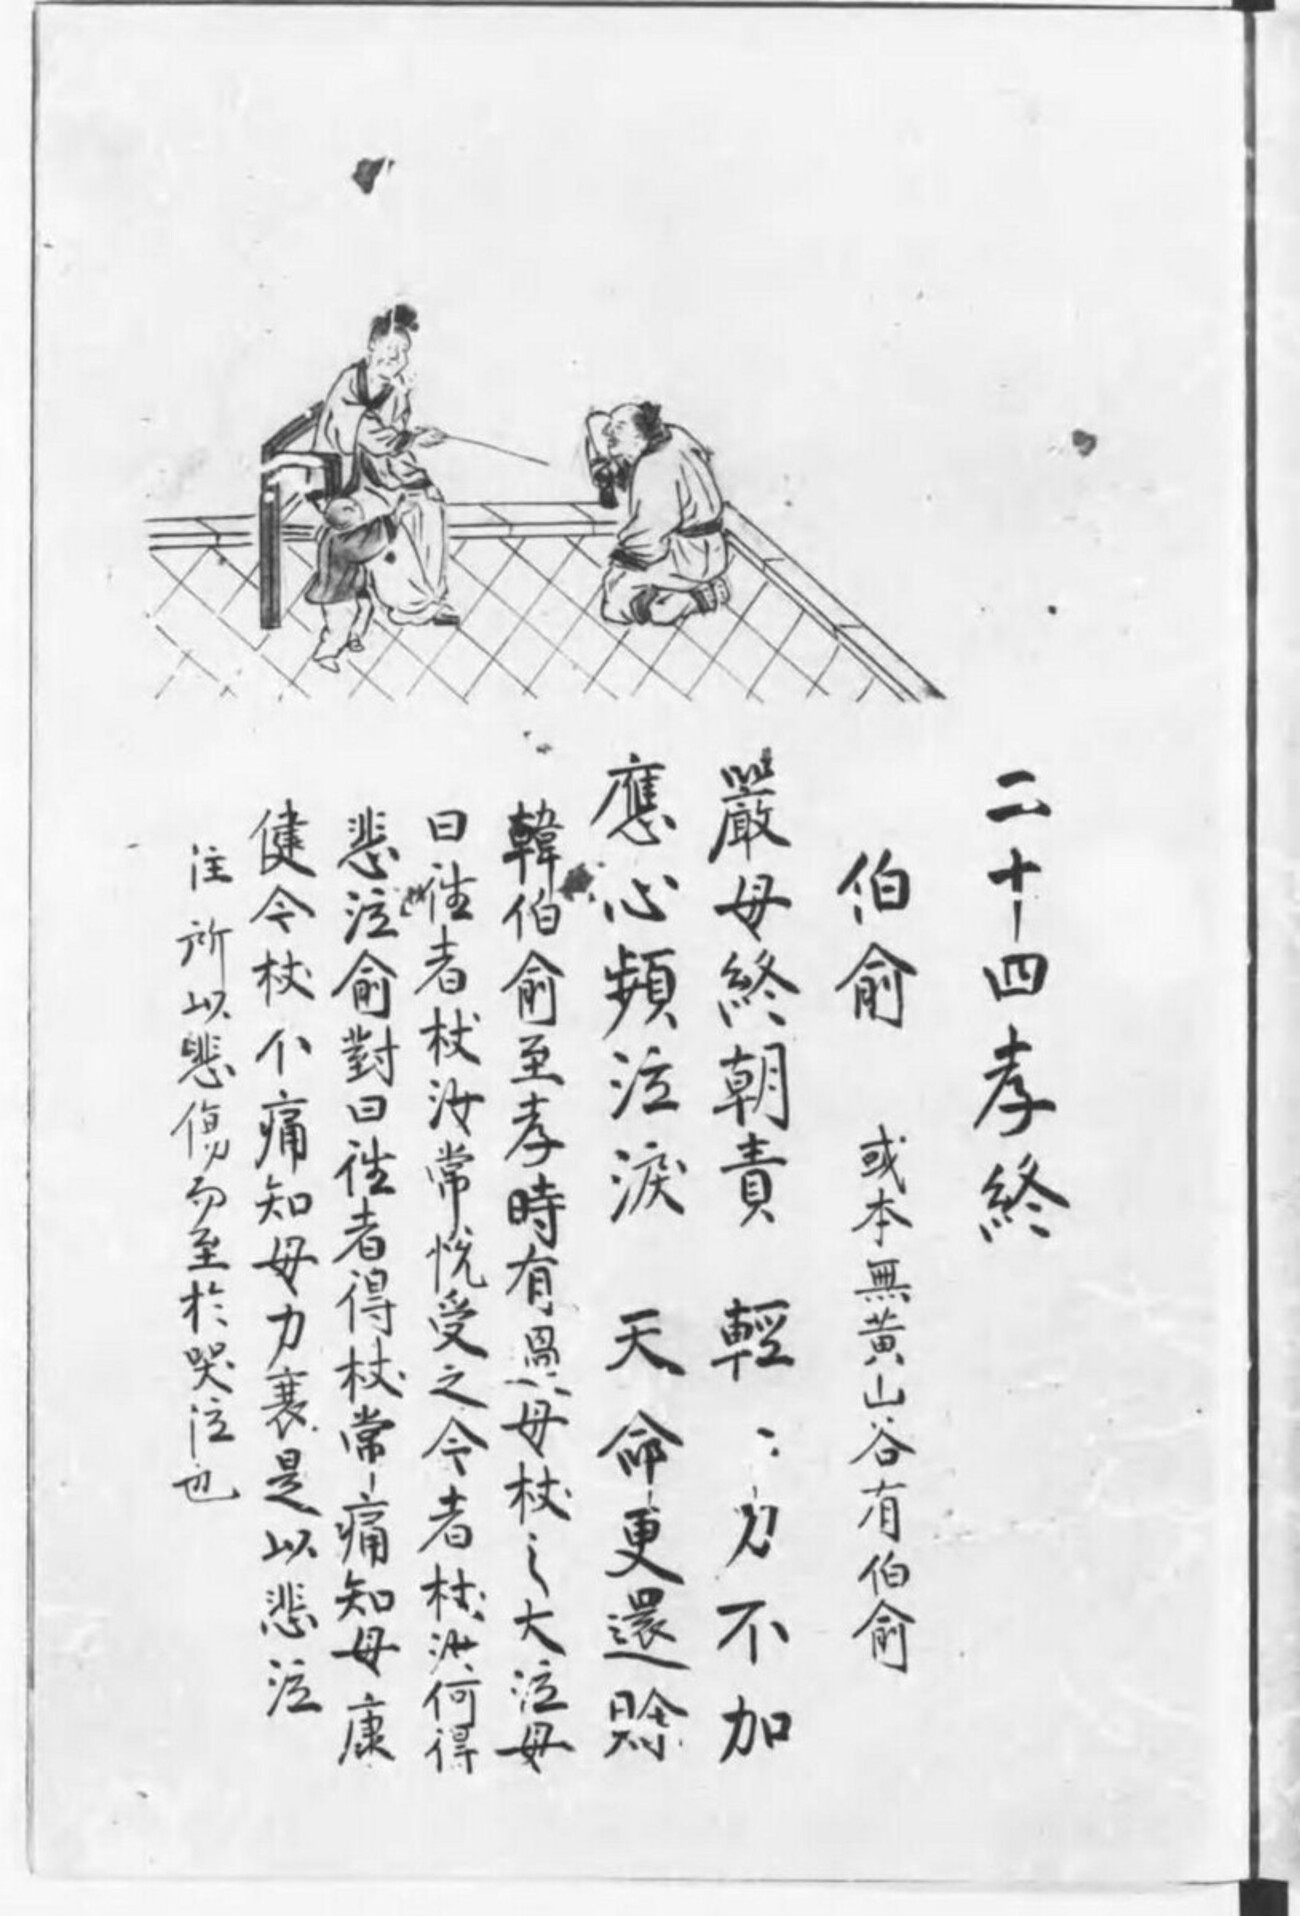 二十四孝終
伯俞 或本無黄山谷有伯俞
嚴母終朝責 輕〻力不加
應心頻泣淚 天命更還賖
韓伯俞至孝時有過母杖之大泣母
曰徃者杖汝常悦受之今者杖汝何得
悲泣俞對曰徃者得杖常痛知母康
健今杖不痛知母力衰是以悲泣
注 所以悲傷而至於哭泣也